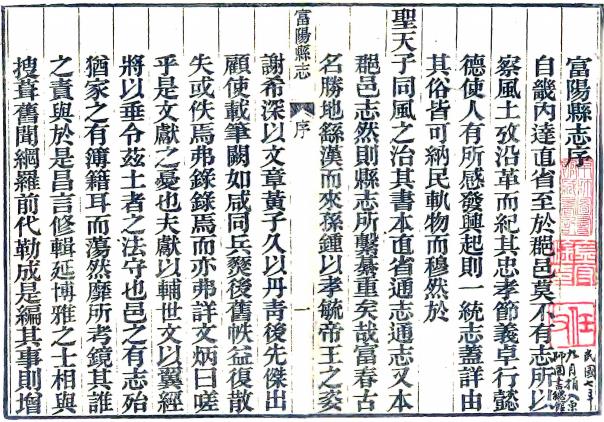 富陽縣志序
自畿內達直省至於郡邑莫不有志所以
察風土攷沿革而紀其忠孝節義卓行懿
德使人有所感發興起則一統志蓋詳由
其俗皆可納民軌物而穆然於
聖天子同風之治其書本直省通志通志又本
郡邑志然則縣志所繫綦重矣哉富春古
名勝地繇漢而來孫鍾以孝毓帝王之姿
富陽縣志 序 一
謝希深以文章黃子久以丹靑後先傑出
顧使載筆闕如咸同兵燹後舊帙益復散
失或佚焉弗錄錄焉而亦弗詳文炳曰嗟
乎是文獻之憂也夫獻以輔世文以翼經
將以垂令茲土者之法守也邑之有志殆
猶家之有簿籍耳而蕩然靡所考鏡其誰
之責與於是昌言修輯延博雅之士相與
搜葺舊聞綱羅前代勒成是編其事則增
民國七年
九月捐入京
師圖書總館